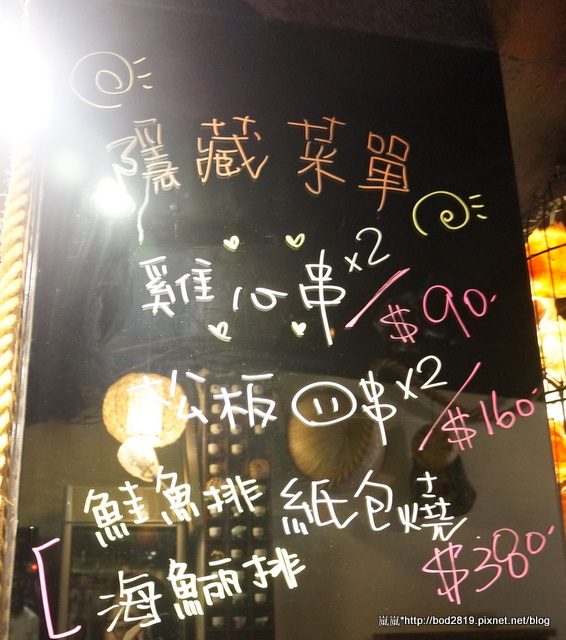 隱藏菜單
雞心串x2/$90.
松板串x2/$160.
鮭魚排紙包燒
海鱺排 $380.
嵐嵐*http://bod2819.pixnet.net/blog